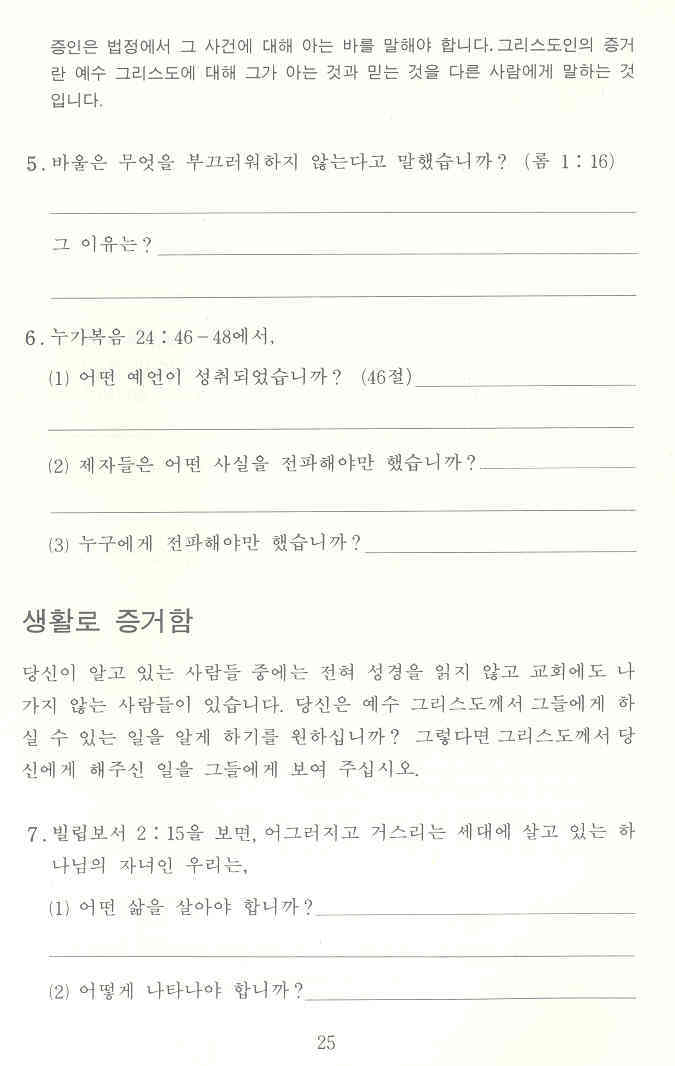 증인은 법정에서 그 사건에 대해 아는 바를 말해야 합니다. 그리스도인의 증거
란 예수 그리스도에 대해 그가 아는 것과 믿는 것을 다른 사람에게 말하는 것
입니다.
5. 바울은 무엇을 부끄러워하지 않는다고 말했습니까? (롬 1 : 16)
그 이유는?
6. 누가복음 24 : 46 – 48에서,
(1) 어떤 예언이 성취되었습니까? (46절)
(2) 제자들은 어떤 사실을 전파해야만 했습니까?
(3) 누구에게 전파해야만 했습니까?
생활로 증거함
당신이 알고 있는 사람들 중에는 전혀 성경을 읽지 않고 교회에도 나
가지 않는 사람들이 있습니다. 당신은 예수 그리스도께서 그들에게 하
실 수 있는 일을 알게 하기를 원하십니까? 그렇다면 그리스도께서 당
신에게 해주신 일을 그들에게 보여 주십시오.
7. 빌립보서 2 : 15을 보면, 어그러지고 거스리는 세대에 살고 있는 하
나님의 자녀인 우리는,
(1) 어떤 삶을 살아야 합니까?
(2) 어떻게 나타나야 합니까?
25